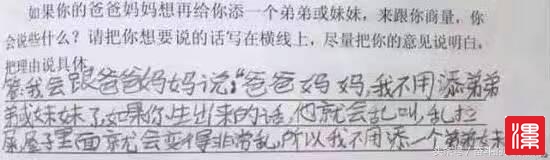 如果你的爸爸妈妈想再给你添一个弟弟或妹妹，来跟你商量，你
会说些什么？请把你想要说的话写在横线上，尽量把你的意见说明白，
把理由说具体。
答：我会跟爸爸妈妈说：“爸爸妈妈，我不用添弟弟
或妹妹了，如果你生出来的话，他就会乱叫，乱拉
屎，屋子里面就会变得非常乱，所以我不用添一个弟弟妹妹
漯
头条号